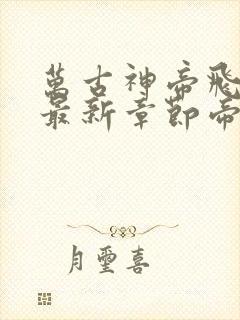 萬古神帝飛
最新章節帝
月璽喜